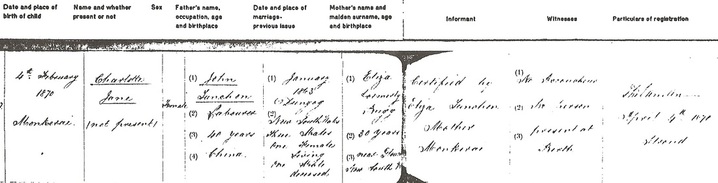 Date and place of birth of child
Name and whether present or not
Sex
Father's name, occupation, age and birthplace
Date and place of marriage- previous issue
Mother's name and maiden surname, age and birthplace
Informant
Witnesses
Particulars of registration
4th February
1870
Monkerai
Charlotte
Jane
(not present)
Female
(1) John
(2) Labourer
(3) 40 years
(4) China
(1) January
1863
(2) Dungog
(2) New South Wales
Males
one Females
Living
one Male
deceased
(1) Eliza
formerly
(2) 30 years
(3) near
New South W
Certified by
Eliza
Mother
Monkerai
(1)
(2) No
(3) present at
Birth
April 4th 1870
Stroud